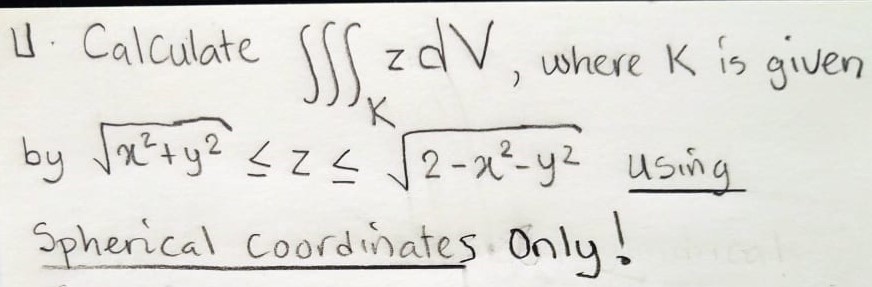 U. Calculate ∭_K z dV, where K is given
by √(x²+y²) ≤ z ≤ √(2-x²-y²) using
Spherical coordinates. Only!